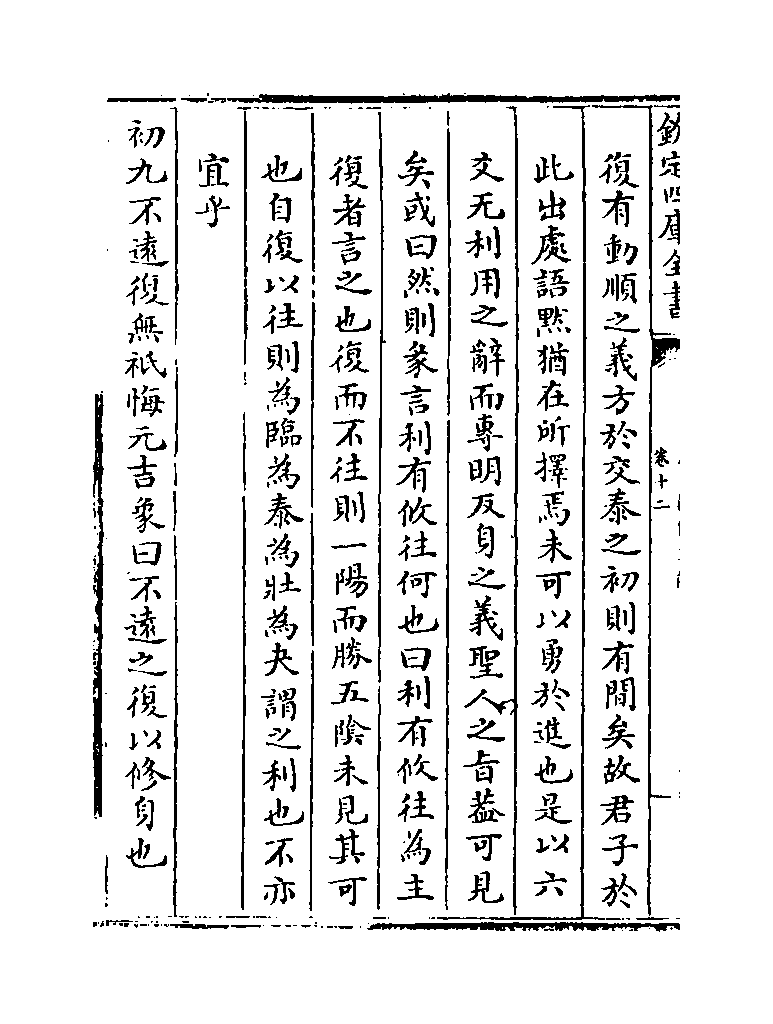 欽定四庫全書
卷十二
復有動順之義方於交泰之初則有間矣故君子於
此出處語黙猶在所擇焉未可以勇於進也是以六
爻无利用之辭而專明反身之義聖人之旨葢可見
矣或曰然則彖言利有攸往何也曰利有攸往為主
復者言之也復而不往則一陽而勝五陰未見其可
也自復以往則為臨為泰為壯為夬謂之利也不亦
宜乎
初九不遠復無祗悔元吉象曰不遠之復以修身也